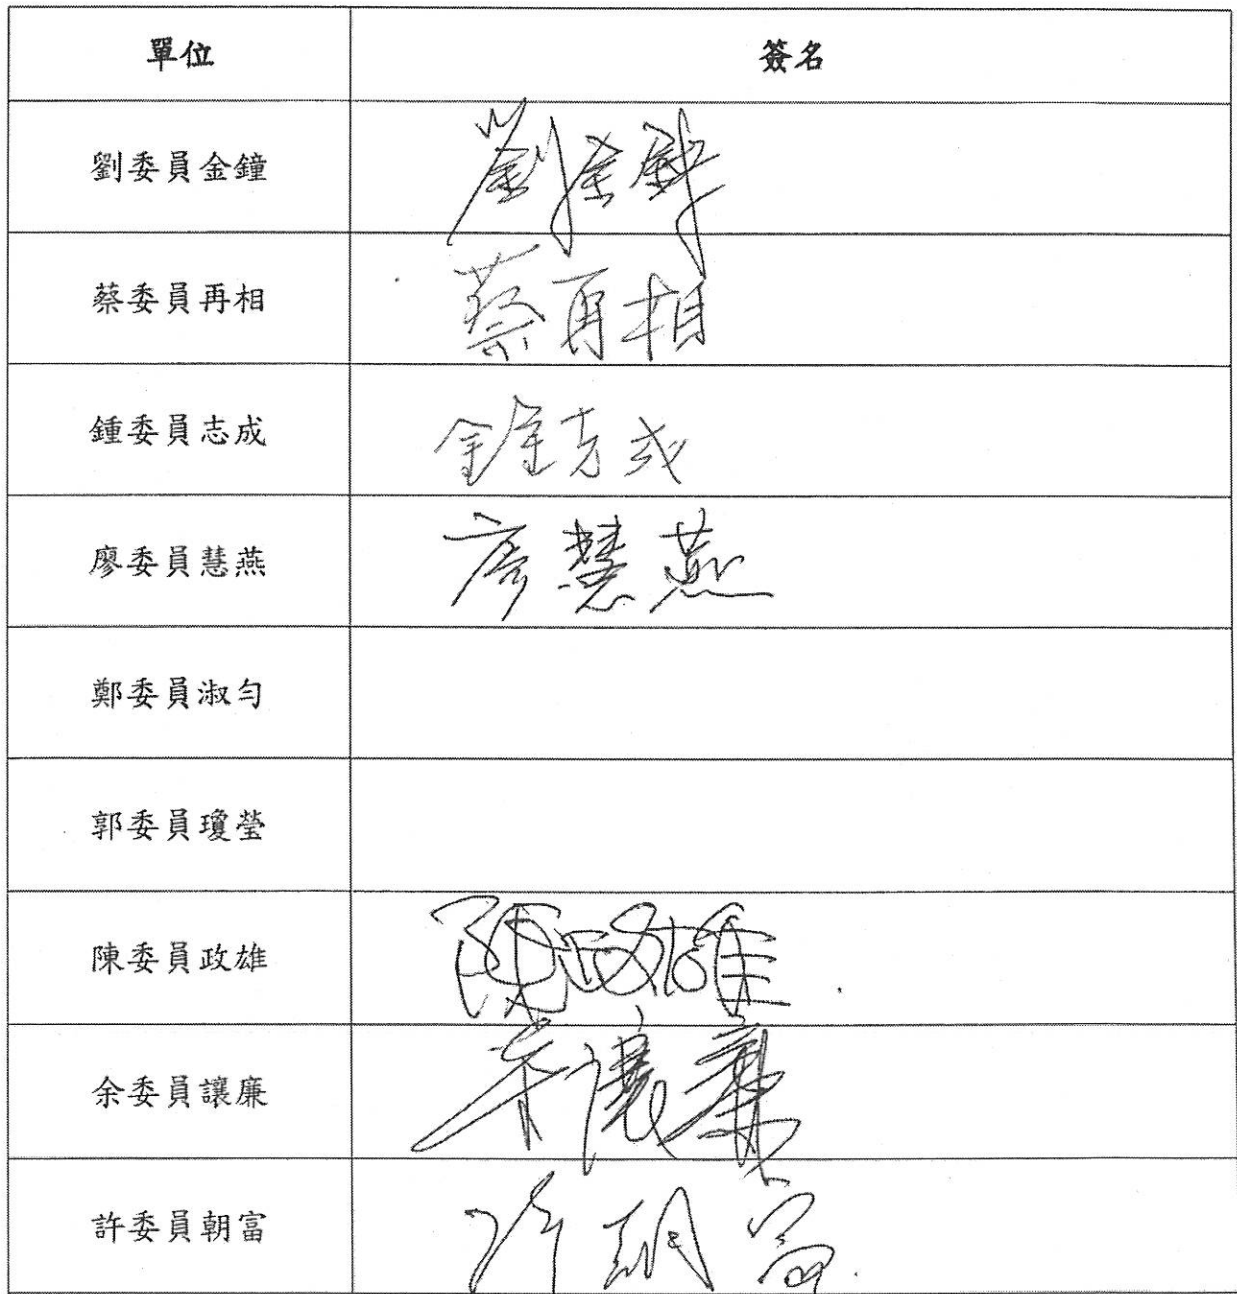 單位 簽名
劉委員金鐘 劉金鐘
蔡委員再相 蔡再相
鍾委員志成 鍾志成
廖委員慧燕 廖慧燕
鄭委員淑勻
郭委員瓊瑩
陳委員政雄 陳政雄
余委員讓廉 余讓廉
許委員朝富 許朝富